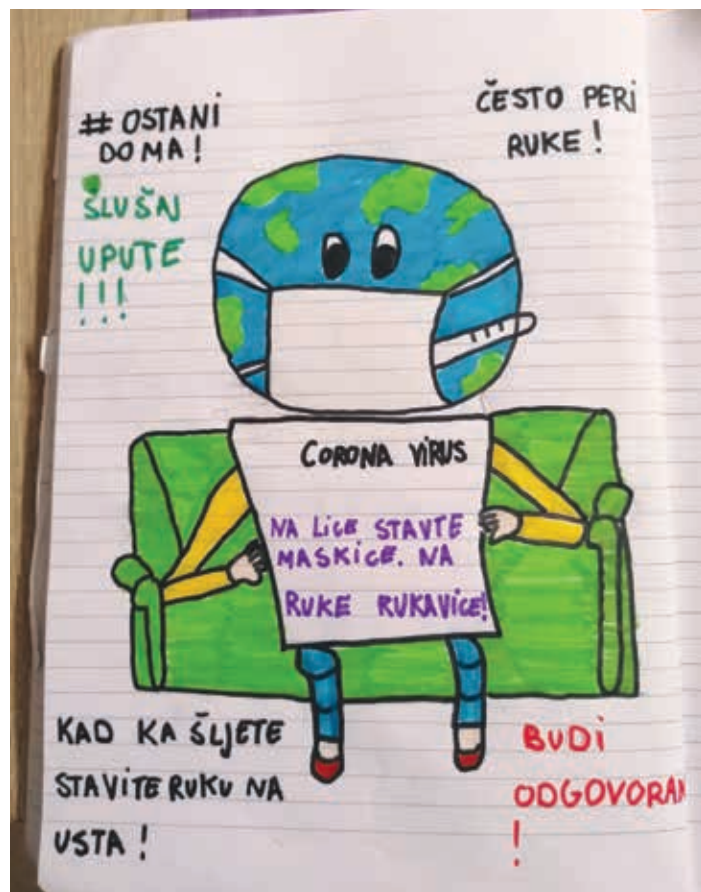 # OSTANI
DOMA!
ČESTO PERI
RUKE!
SLUŠAJ
UPUTE
!!!
CORONA VIRUS
NA LICE STAVTE
MASKICE. NA
RUKE RUKAVICE!
KAD KAŠLJETE
STAVITE RUKU NA
USTA!
BUDI
ODGOVORAN
!